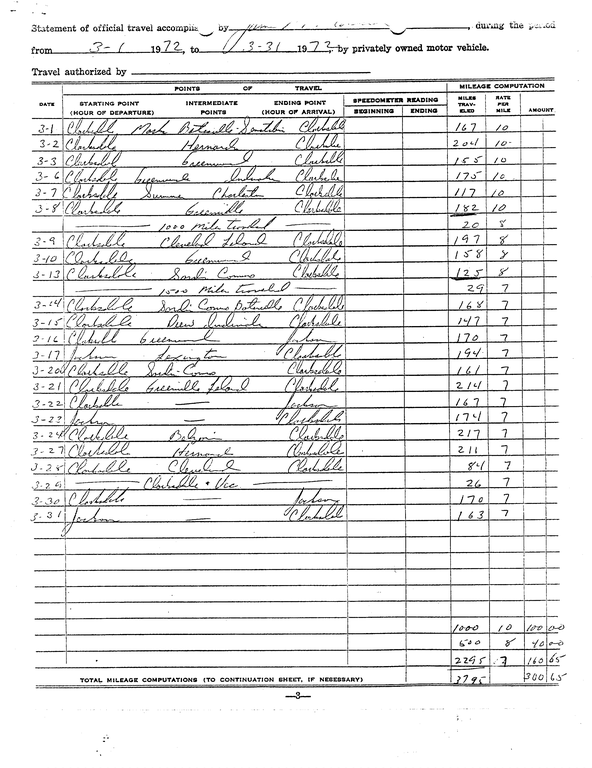 Statement of official travel accomplis by , during the period
from 3-1 1972, to 3-31 1972, by privately owned motor vehicle.
Travel authorized by
POINTS OF TRAVEL MILEAGE COMPUTATION
DATE STARTING POINT (HOUR OF DEPARTURE) INTERMEDIATE POINTS ENDING POINT (HOUR OF ARRIVAL) SPEEDOMETER READING BEGINNING ENDING MILES TRAV-ELED RATE PER MILE AMOUNT
3-1 Clarksdale Marks Batesville-Sardis Clarksdale 167 10
3-2 Clarksdale Hernando Clarksdale 204 10
3-3 Clarksdale Greenwood Clarksdale 155 10
3-6 Clarksdale Greenwood Indianola Clarksdale 175 10
3-7 Clarksdale Sumner Charleston Clarksdale 117 10
3-8 Clarksdale Greenville Clarksdale 182 10
1000 Miles traveled 20 8
3-9 Clarksdale Cleveland Leland Clarksdale 197 8
3-10 Clarksdale Greenwood Clarksdale 158 8
3-13 Clarksdale Sardis Como Clarksdale 125 8
1500 Miles traveled 29 7
3-14 Clarksdale Sardis Como Batesville Clarksdale 168 7
3-15 Clarksdale Drew Indianola Clarksdale 147 7
3-16 Clarksdale Greenwood Jackson 170 7
3-17 Jackson Lexington Clarksdale 194 7
3-20 Clarksdale Sardis-Como Clarksdale 161 7
3-21 Clarksdale Greenville Leland Clarksdale 214 7
3-22 Clarksdale — Jackson 167 7
3-23 Jackson — Clarksdale 174 7
3-24 Clarksdale Belzoni Clarksdale 217 7
3-27 Clarksdale Hernando Clarksdale 211 7
3-28 Clarksdale Cleveland Clarksdale 84 7
3-29 Clarksdale + Vic 26 7
3-30 Clarksdale — Jackson 170 7
3-31 Jackson — Clarksdale 163 7
1000 10 100 00
500 8 40 00
2295 7 160 65
TOTAL MILEAGE COMPUTATIONS (TO CONTINUATION SHEET, IF NESESSARY) 3795 300 65
—3—